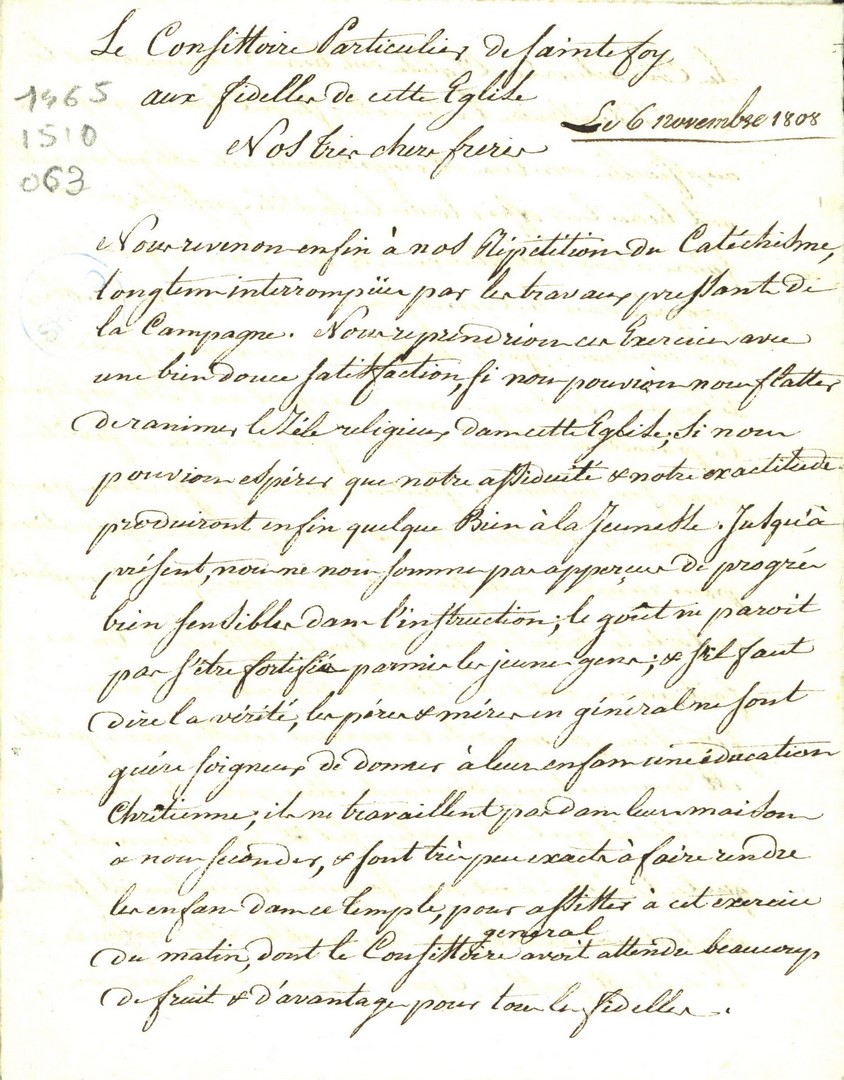 Le Consistoire Particulier de sainte foy
aux fidelles de cette Eglise
Le 6 novembre 1808
Nos très chers freres
1465
1510
063
Nous revenons enfin à nos Répétitions du Catéchisme,
longtems interrompües par les travaux pressants de
la Campagne. Nous reprendrions ces Exercices avec
une bien douce satisfaction, si nous pouvions nous flatter
de ranimer le Zéle religieux dans cette Eglise; si nous
pouvions espérer que notre assiduité & notre exactitude
produiront enfin quelque Bien à la Jeunesse. Jusqu'à
présent, nous ne nous sommes pas apperçus de progrés
bien sensibles dans l'instruction; le goût ne paroit
pas s'être fortifié parmis les jeunes gens; & s'il faut
dire la vérité, les péres & méres en général ne sont
guére soigneux de donner à leurs enfans une éducation
Chrétienne; ils ne travaillent pas dans leurs maisons
à nous seconder, & sont très peu exacts à faire rendre
les enfans dans ce temple, pour assister à cet exercice
du matin, dont le Consistoire general avoit attendu beaucoup
de fruit & d'avantages pour tous les fidelles.